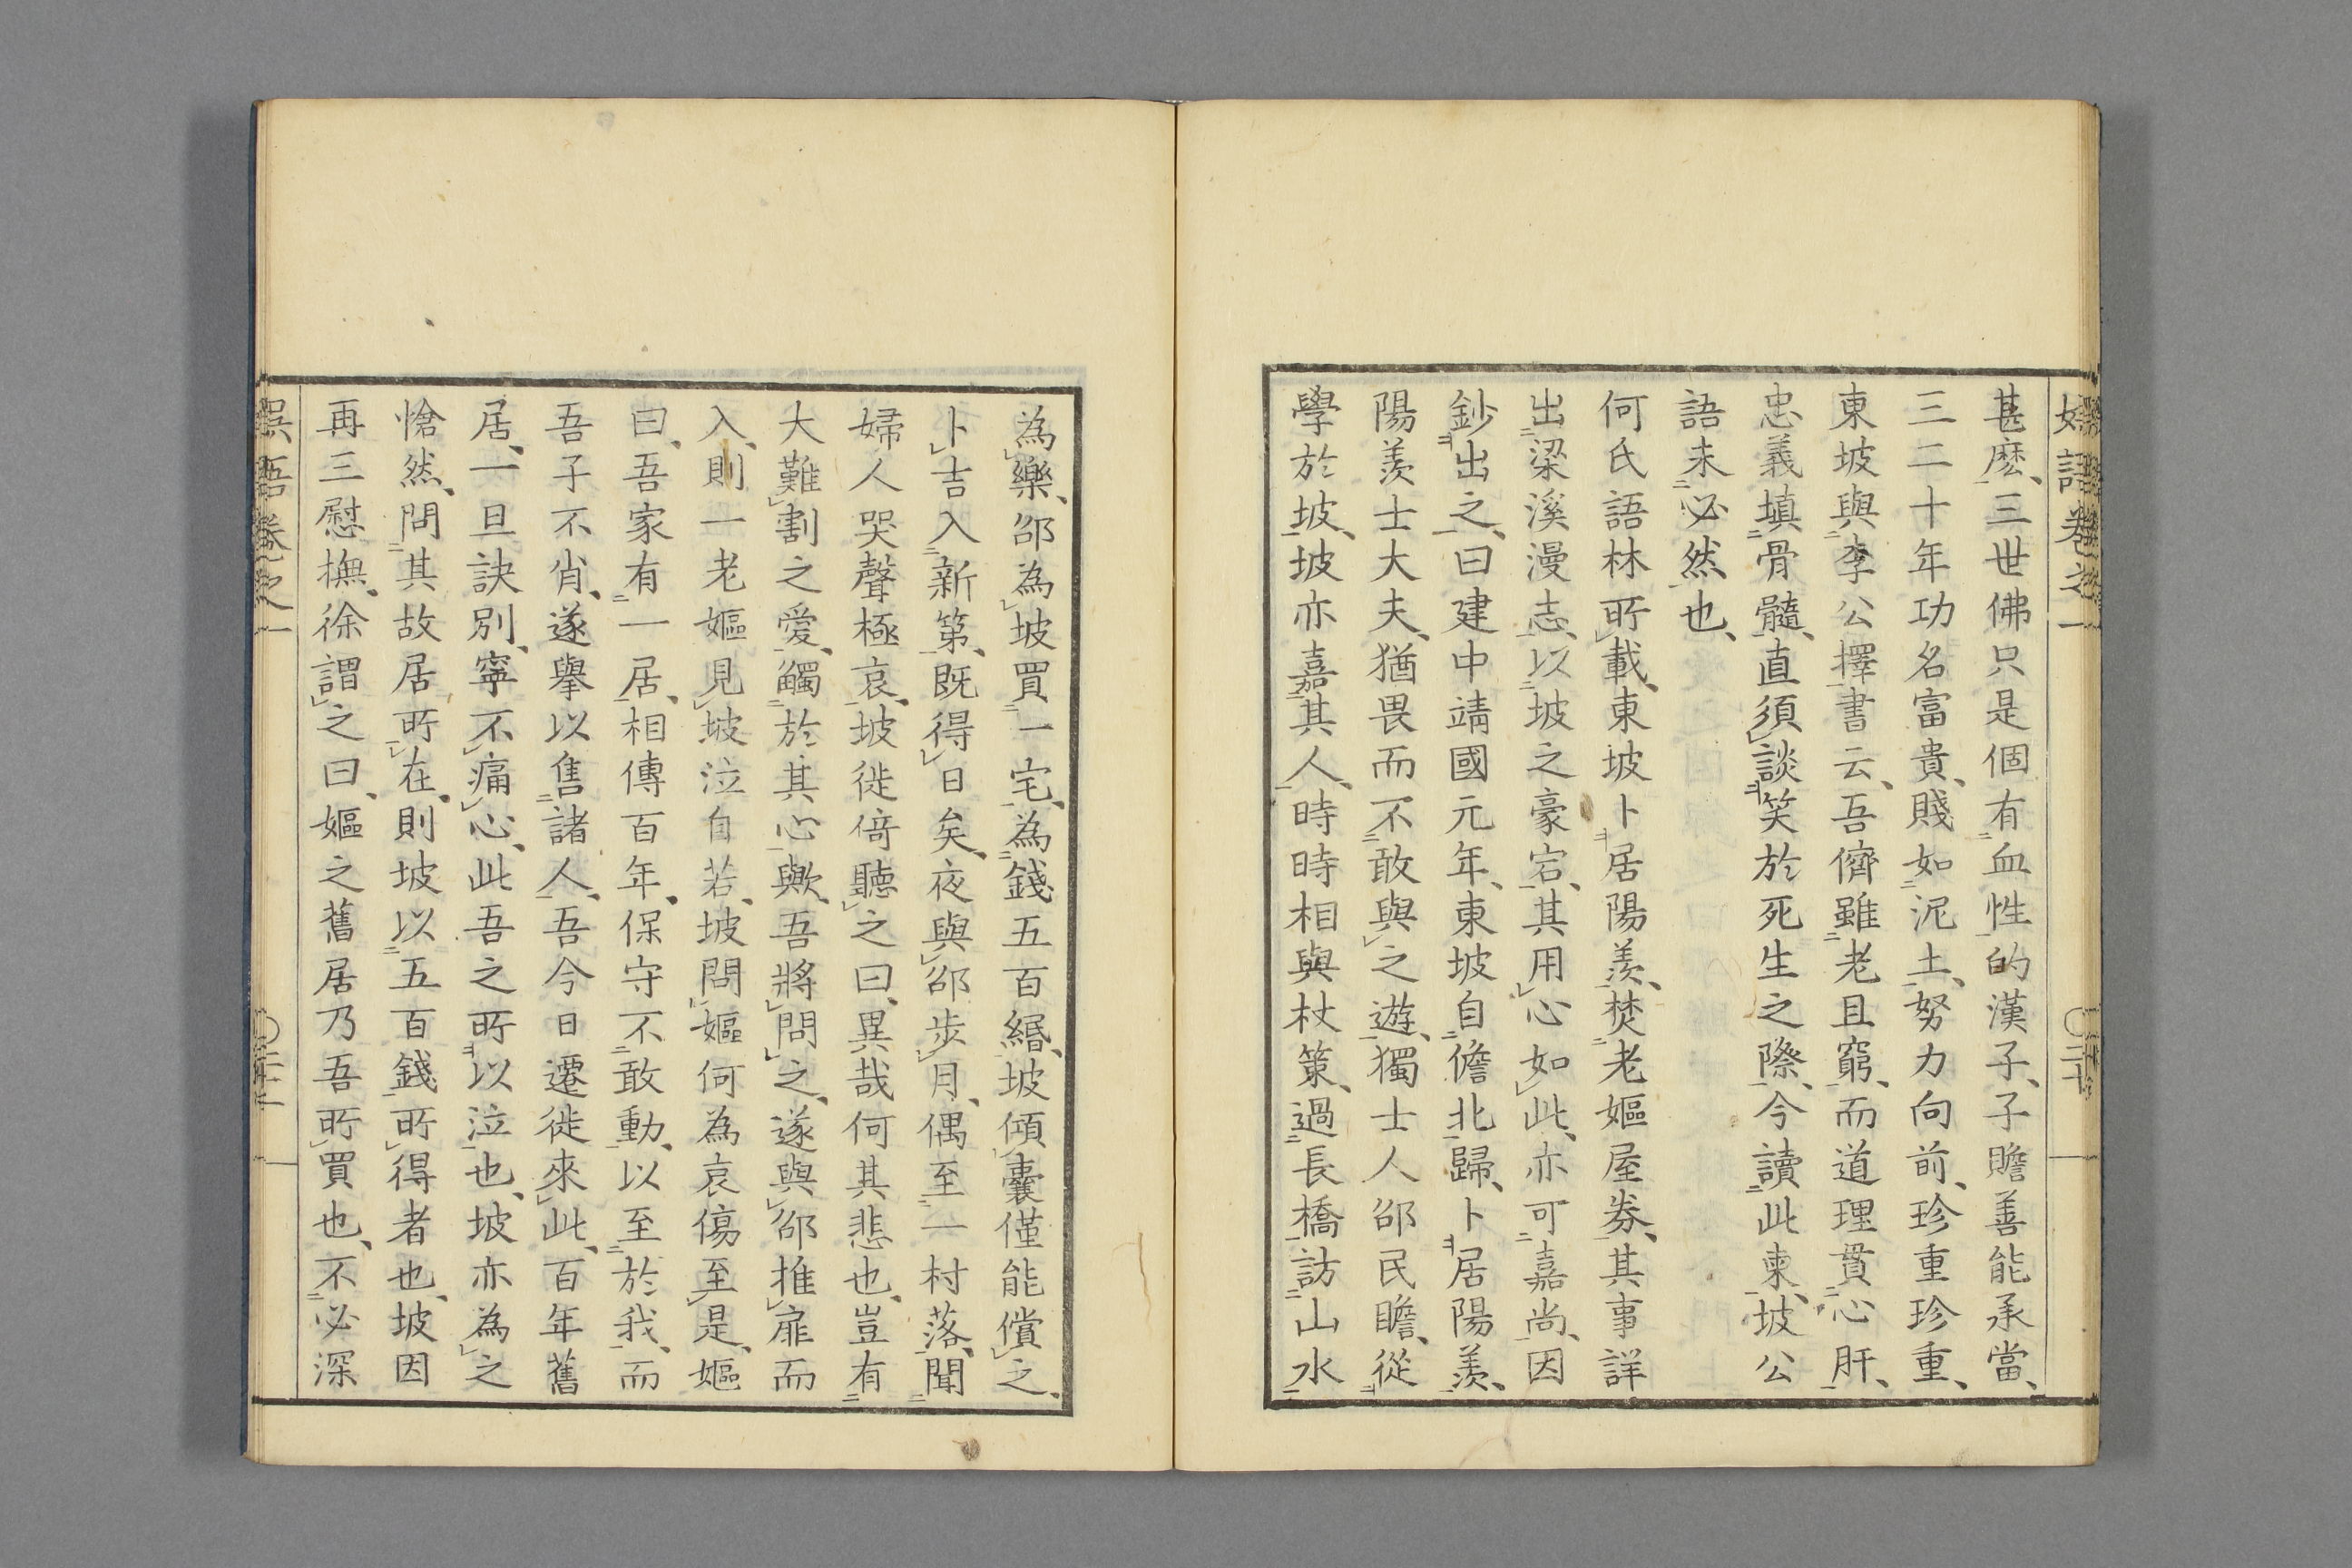 甚麽、三世佛只是個有血性的漢子、子瞻善能承當、
三二十年功名富貴、賤如泥土、努力向前、珍重珍重、
東坡與李公擇書云、吾儕雖老且窮、而道理貫心肝、
忠義填骨髓、直須談笑於死生之際、今讀此柬、坡公
語未必然也、
何氏語林所載、東坡卜居陽羨、焚老嫗屋券、其事詳
出梁溪漫志、以坡之豪宕、其用心如此、亦可嘉尚、因
鈔出之、曰建中靖國元年、東坡自儋北歸、卜居陽羨、
陽羨士大夫、猶畏而不敢與之遊、獨士人邵民瞻、從
學於坡、坡亦嘉其人、時時相與杖策、過長橋訪山水
為樂、邵為坡買一宅、為錢五百緡、坡傾囊僅能償之、
卜吉入新第、既得日矣、夜與邵步月、偶至一村落、聞
婦人哭聲極哀、坡徙倚聽之曰、異哉何其悲也、豈有
大難割之愛、觸於其心歟、吾將問之、遂與邵推扉而
入、則一老嫗見坡泣自若、坡問嫗何為哀傷至是、嫗
曰、吾家有一居、相傳百年、保守不敢動、以至於我、而
吾子不肖、遂舉以售諸人、吾今日遷徙來此、百年舊
居、一旦訣別、寧不痛心、此吾之所以泣也、坡亦為之
愴然、問其故居所在、則坡以五百錢所得者也、坡因
再三慰撫、徐謂之曰、嫗之舊居乃吾所買也、不必深